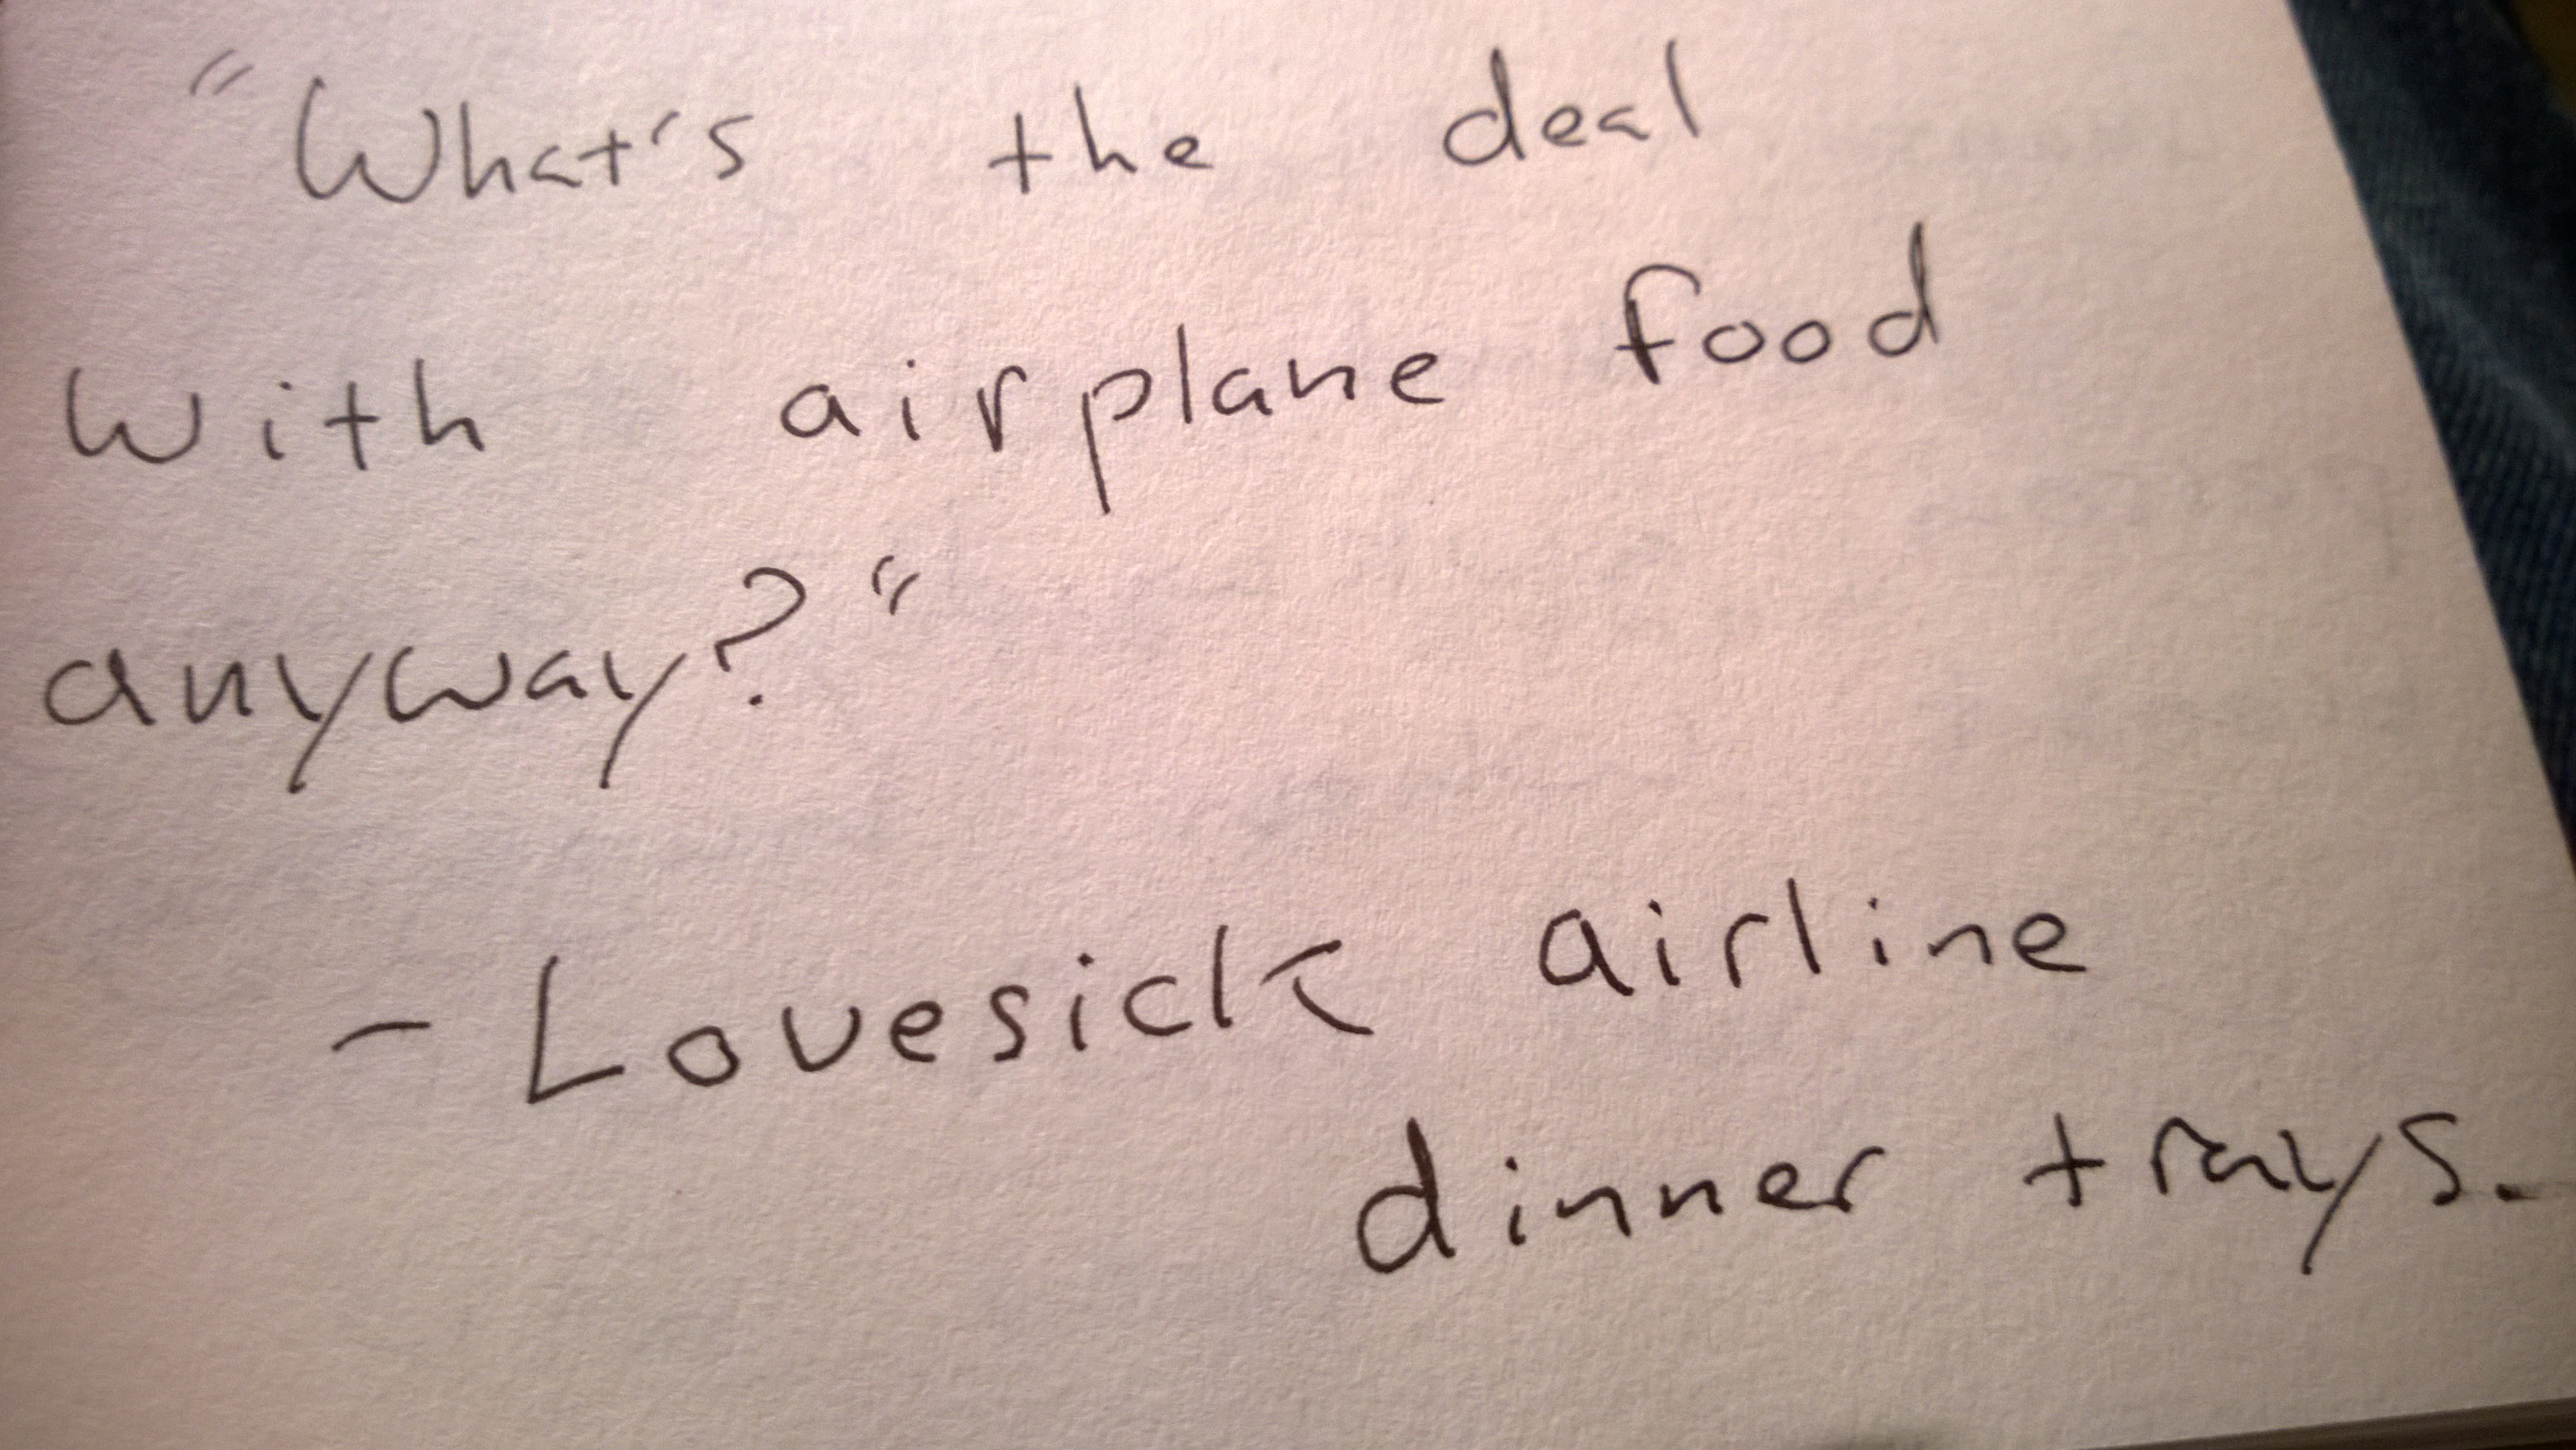 "What's the deal
with airplane food
anyway?"
- Lovesick airline
dinner trays.